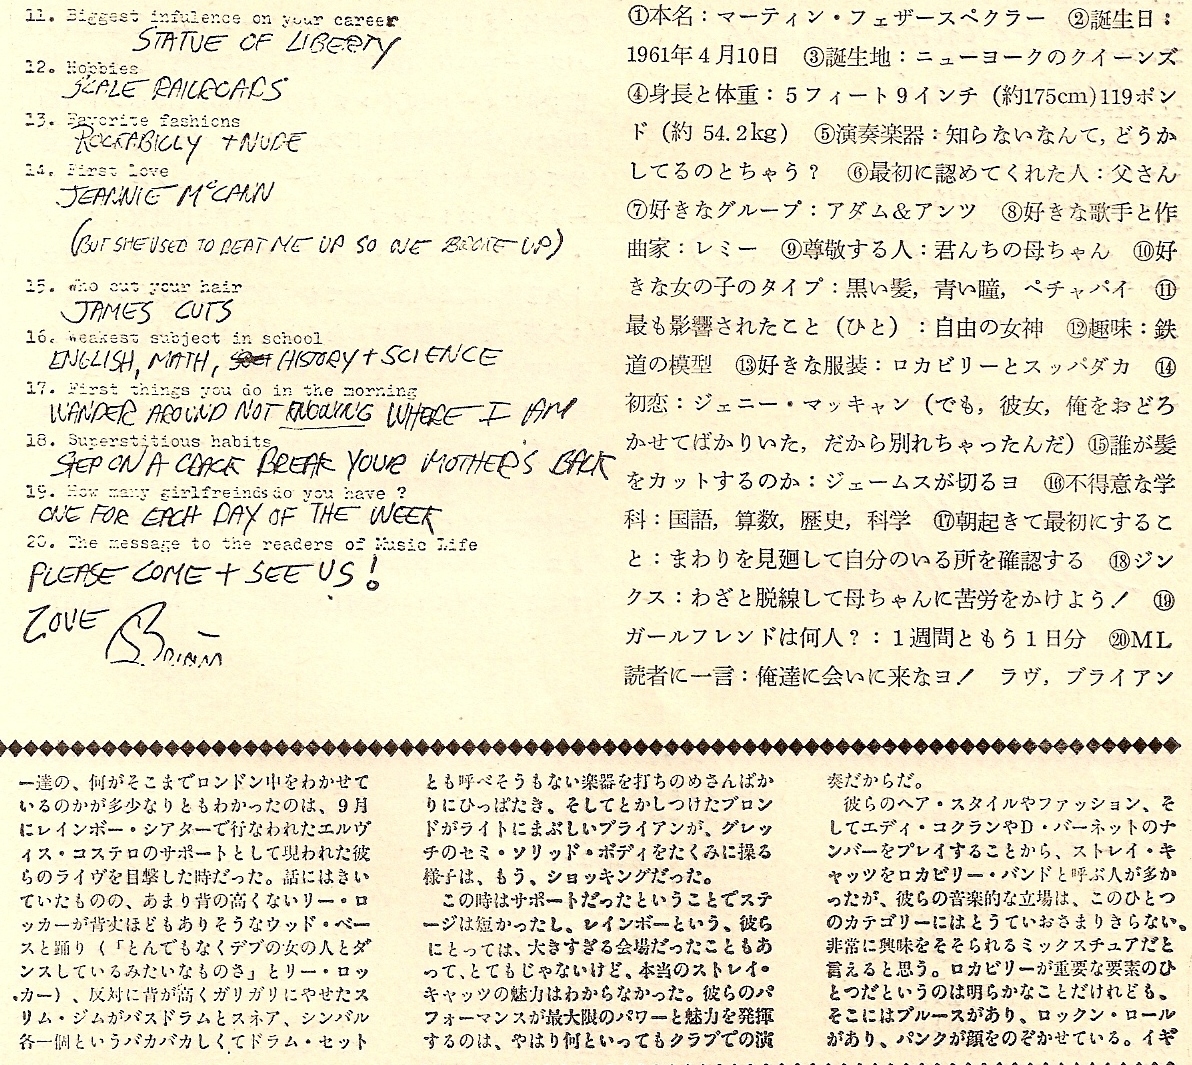 11. Biggest infulence on your career
STATUE OF LIBERTY
12. Hobbies
SCALE RAILROCARS
13. Favorite fashions
ROCKABILLY + NUDE
14. First love
JEANNIE McCANN
(BUT SHE USED TO BEAT ME UP SO WE BROKE UP)
15. Who cut your hair
JAMES CUTS
16. Weakest subject in school
ENGLISH, MATH, HISTORY + SCIENCE
17. First things you do in the morning
WANDER AROUND NOT KNOWING WHERE I AM
18. Superstitious habits
STEP ON A CRACK BREAK YOUR MOTHER'S BACK
19. How many girlfreinds do you have ?
ONE FOR EACH DAY OF THE WEEK
20. The message to the readers of Music Life
PLEASE COME + SEE US!
LOVE
Brian
①本名：マーティン・フェザースペクラー　②誕生日：
1961年4月10日　③誕生地：ニューヨークのクイーンズ
④身長と体重：5フィート9インチ（約175cm)119ポン
ド（約 54.2kg）　⑤演奏楽器：知らないなんて，どうか
してるのとちゃう？　⑥最初に認めてくれた人：父さん
⑦好きなグループ：アダム＆アンツ　⑧好きな歌手と作
曲家：レミー　⑨尊敬する人：君んちの母ちゃん　⑩好
きな女の子のタイプ：黒い髪，青い瞳，ペチャパイ　⑪
最も影響されたこと（ひと）：自由の女神　⑫趣味：鉄
道の模型　⑬好きな服装：ロカビリーとスッパダカ　⑭
初恋：ジェニー・マッキャン（でも，彼女，俺をおどろ
かせてばかりいた，だから別れちゃったんだ）⑮誰が髪
をカットするのか：ジェームスが切るヨ　⑯不得意な学
科：国語，算数，歴史，科学　⑰朝起きて最初にするこ
と：まわりを見廻して自分のいる所を確認する　⑱ジン
クス：わざと脱線して母ちゃんに苦労をかけよう！　⑲
ガールフレンドは何人？：１週間ともう１日分　⑳ＭＬ
読者に一言：俺達に会いに来なヨ！　ラヴ，ブライアン
一達の、何がそこまでロンドン中をわかせて
いるのかが多少なりともわかったのは、9月
にレインボー・シアターで行なわれたエルヴ
ィス・コステロのサポートとして現われた彼
らのライヴを目撃した時だった。話にはきい
ていたものの、あまり背の高くないリー・ロ
ッカーが背丈ほどもありそうなウッド・ベー
スと踊り（「とんでもなくデブの女の人とダ
ンスしているみたいなものさ」とリー・ロッ
カー）、反対に背が高くガリガリにやせたス
リム・ジムがバスドラムとスネア、シンバル
各一個というバカバカしくてドラム・セット
とも呼べそうもない楽器を打ちのめさんばか
りにひっぱたき、そしてとかしつけたブロン
ドがライトにまぶしいブライアンが、グレッ
チのセミ・ソリッド・ボディをたくみに操る
様子は、もう、ショッキングだった。
　この時はサポートだったということでステ
ージは短かったし、レインボーという、彼ら
にとっては、大きすぎる会場だったこともあ
って、とてもじゃないけど、本当のストレイ・
キャッツの魅力はわからなかった。彼らのパ
フォーマンスが最大限のパワーと魅力を発揮
するのは、やはり何といってもクラブでの演
奏だからだ。
　彼らのヘア・スタイルやファッション、そ
してエディ・コクランやD・バーネットのナ
ンバーをプレイすることから、ストレイ・キ
ャッツをロカビリー・バンドと呼ぶ人が多か
ったが、彼らの音楽的な立場は、このひとつ
のカテゴリーにはとうていおさまりきらない。
非常に興味をそそられるミックスチュアだと
言えると思う。ロカビリーが重要な要素のひ
とつだというのは明らかなことだけれども、
そこにはブルースがあり、ロックン・ロール
があり、パンクが顔をのぞかせている。イギ